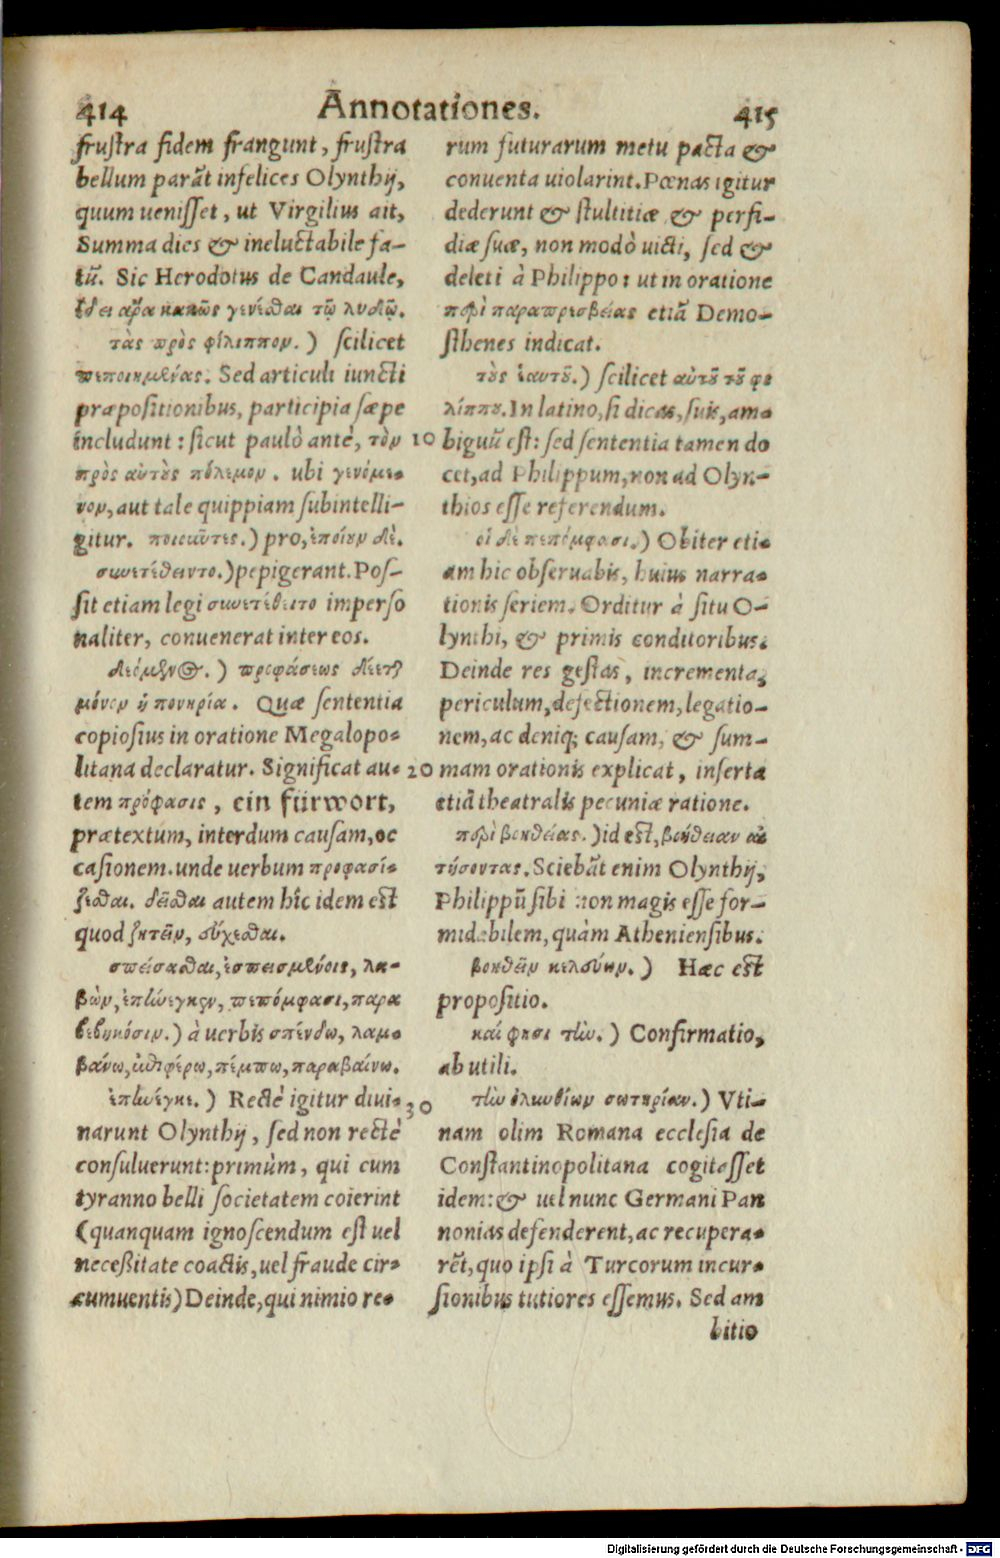 414 Annotationes. 415
frustra fidem frangunt, frustra
bellum parãt infelices Olynthij,
quum uenisset, ut Virgilius ait,
Summa dies & ineluctabile fa-
tũ. Sic Herodotus de Candaule,
ἔδει ἄρα κακῶς γενέσθαι τῷ λυδῷ.
τὰς πρὸς φίλιππον.) scilicet
πεποιημένας. Sed articuli iuncti
præpositionibus, participia sæpe
includunt: sicut paulò antè, τὸν
πρὸς αὐτοὺς πόλεμον. ubi γενόμε-
νον, aut tale quippiam subintelli-
gitur. ποιοῦντες.) pro, ἐποίουν δὲ.
συνετίθειντο.) pepigerant. Pos-
sit etiam legi συνετέθειτο imperso
naliter, conuenerat inter eos.
δεόμενος.) προφάσεως δεῖται
μόνον ἡ πονηρία. Quæ sententia
copiosius in oratione Megalopo-
litana declaratur. Significat au-
tem πρόφασις, ein fürwort,
prætextum, interdum causam, oc
casionem. unde uerbum προφασί-
ζεσθαι. δεῖσθαι autem hîc idem est
quod ζητεῖν, εὔχεσθαι.
σπείσασθαι, ἐσπεισμένοις, λα-
βὼν, ἐπήνεγκεν, πεπόμφασι, παρα
βεβηκόσιν.) à uerbis σπένδω, λαμ-
βάνω, ἐπιφέρω, πέμπω, παραβαίνω.
ἐπήνεγκε.) Rectè igitur diui-
narunt Olynthij, sed non rectè
consuluerunt: primùm, qui cum
tyranno belli societatem coierint
(quanquam ignoscendum est uel
necessitate coactis, uel fraude cir-
cumuentis) Deinde, qui nimio re-
10
20
30
rum futurarum metu pacta &
conuenta uiolarint. Pœnas igitur
dederunt & stultitiæ & perfi-
diæ suæ, non modò uicti, sed &
deleti à Philippo: ut in oratione
περὶ παραπρεσβείας etiã Demo-
sthenes indicat.
τοὺς ἑαυτοῦ.) scilicet αὐτοῦ τοῦ φι
λίππου. In latino, si dicas, suis, am-
biguũ est: sed sententia tamen do
cet, ad Philippum, non ad Olyn-
thios esse referendum.
οἱ δὲ πεπόμφασι.) Obiter eti-
am hic obseruabis, huius narra-
tionis seriem. Orditur à situ O-
lynthi, & primis conditoribus.
Deinde res gestas, incrementa,
periculum, defectionem, legatio-
nem, ac deniq; causam, & sum-
mam orationis explicat, inserta
etiã theatralis pecuniæ ratione.
περὶ βοηθείας.) id est, βοήθειαν αἰ
τήσοντας. Sciebãt enim Olynthij,
Philippũ sibi non magis esse for-
midabilem, quàm Atheniensibus.
βοηθεῖν κελεύων.) Hæc est
propositio.
καί φησι τὴν.) Confirmatio,
ab utili.
τὴν ὀλυνθίων σωτηρίαν.) Vti-
nam olim Romana ecclesia de
Constantinopolitana cogitasset
idem: & uel nunc Germani Pan
nonias defenderent, ac recupera-
rẽt, quo ipsi à Turcorum incur-
sionibus tutiores essemus. Sed am
bitio
Digitalisierung gefördert durch die Deutsche Forschungsgemeinschaft - DFG